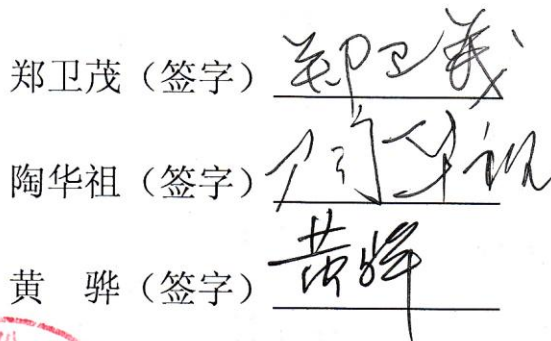 郑卫茂（签字）郑卫茂
陶华祖（签字）陶华祖
黄　骅（签字）黄骅